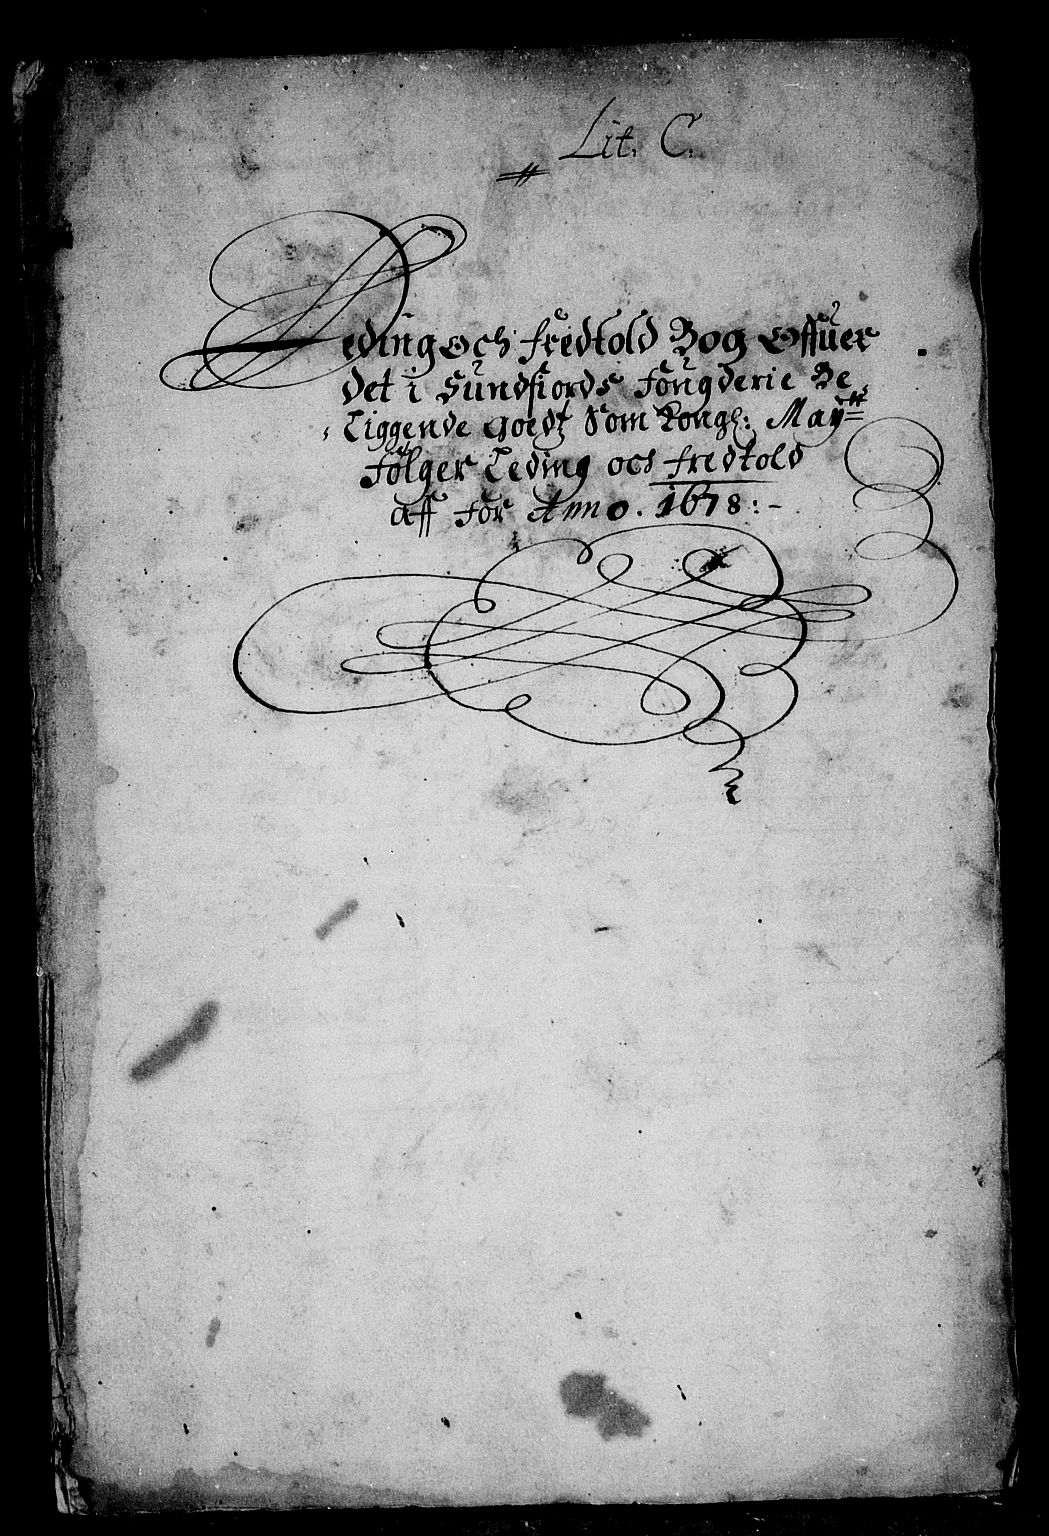 Lit. C.
Leding och fredtold Bog Offuer
det i Sundfiords fougderie Be,
liggende Goedtz Som Kongl: Maytt
følger Leding och fredtold
aff for Anno. 1678:-